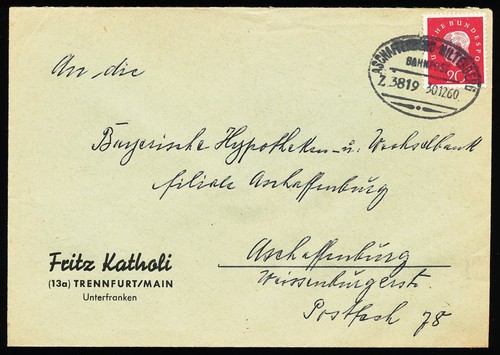 HE BUNDESPO
20
ASCHAFFENBURG MILTENBERG
BAHNPOST
Z.3819 301260
An die
Bayerische Hypotheken- u. Wechselbank
filiale Aschaffenburg
Aschaffenburg
Weissenburgerstr.
Postfach 78
Fritz Katholi
(13a) TRENNFURT/MAIN
Unterfranken